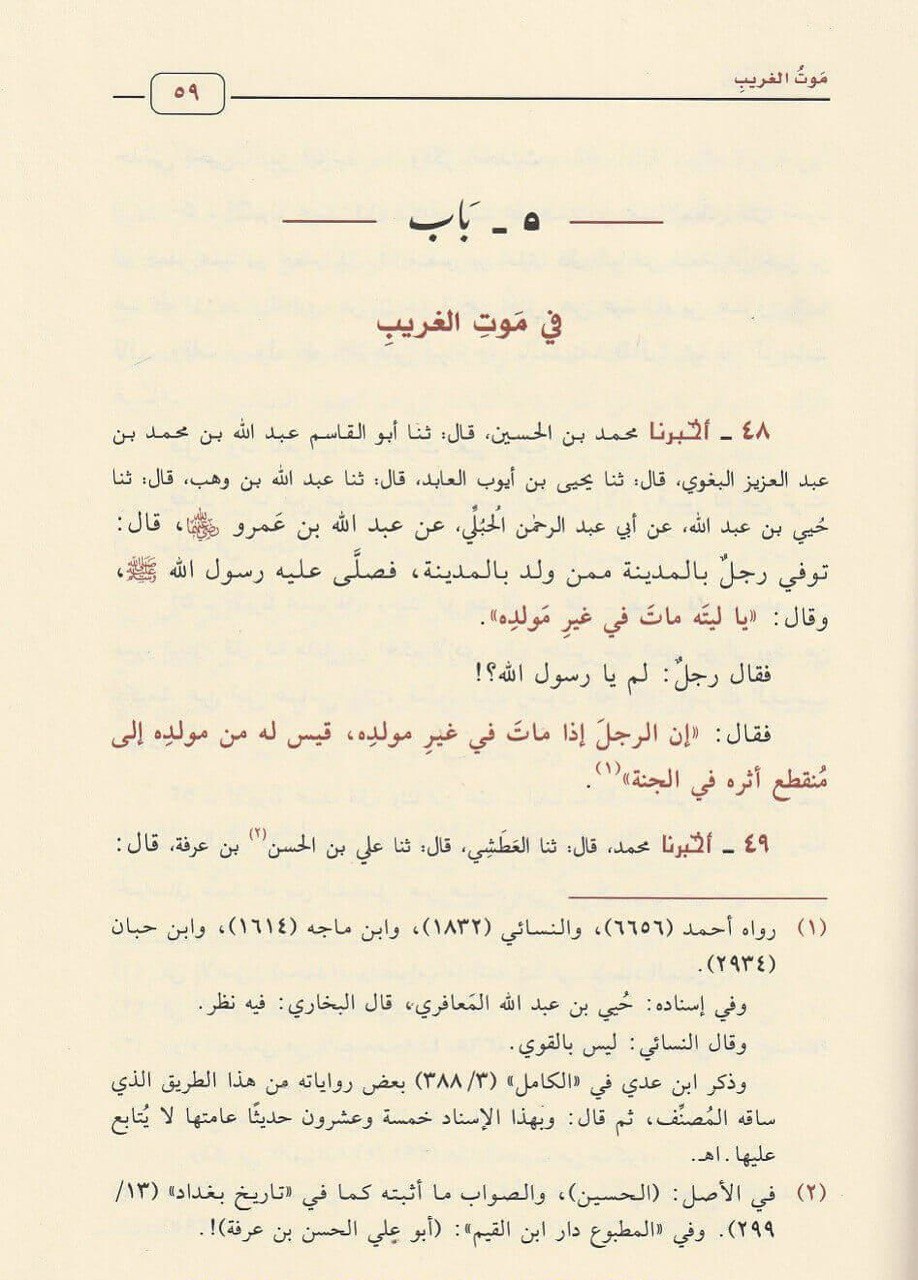 مَوتُ الغريبِ
٥٩
٥ ـ بَاب
في مَوتِ الغريبِ
٤٨ ـ أخبرنا محمد بن الحسين، قال: ثنا أبو القاسم عبد الله بن محمد بن
عبد العزيز البغوي، قال: ثنا يحيى بن أيوب العابد، قال: ثنا عبد الله بن وهب، قال: ثنا
حُيي بن عبد الله، عن أبي عبد الرحمٰن الُحبُلِّي، عن عبد الله بن عَمرو رضي الله عنهما، قال:
توفي رجلٌ بالمدينة ممن ولد بالمدينة، فصلَّى عليه رسول الله ﷺ،
وقال: «يا ليتَه ماتَ في غيرِ مَولدِه».
فقال رجلٌ: لم يا رسول الله؟!
فقال: «إن الرجلَ إذا ماتَ في غيرِ مولدِه، قيس له من مولدِه إلى
مُنقطع أثره في الجنة»(١).
٤٩ ـ أخبرنا محمد، قال: ثنا العَطَشِي، قال: ثنا علي بن الحسن(٢) بن عرفة، قال:
(١) رواه أحمد (٦٦٥٦)، والنسائي (١٨٣٢)، وابن ماجه (١٦١٤)، وابن حبان
(٢٩٣٤).
وفي إسناده: حُيي بن عبد الله المَعافري، قال البخاري: فيه نظر.
وقال النسائي: ليس بالقوي.
وذكر ابن عدي في «الكامل» (٣/ ٣٨٨) بعض رواياته من هذا الطريق الذي
ساقه المُصنِّف، ثم قال: وبهذا الإسناد خمسة وعشرون حديثًا عامتها لا يُتابع
عليها.اهـ.
(٢) في الأصل: (الحسين)، والصواب ما أثبته كما في «تاريخ بغداد» (١٣/
٢٩٩). وفي «المطبوع دار ابن القيم»: (أبو علي الحسن بن عرفة)!.